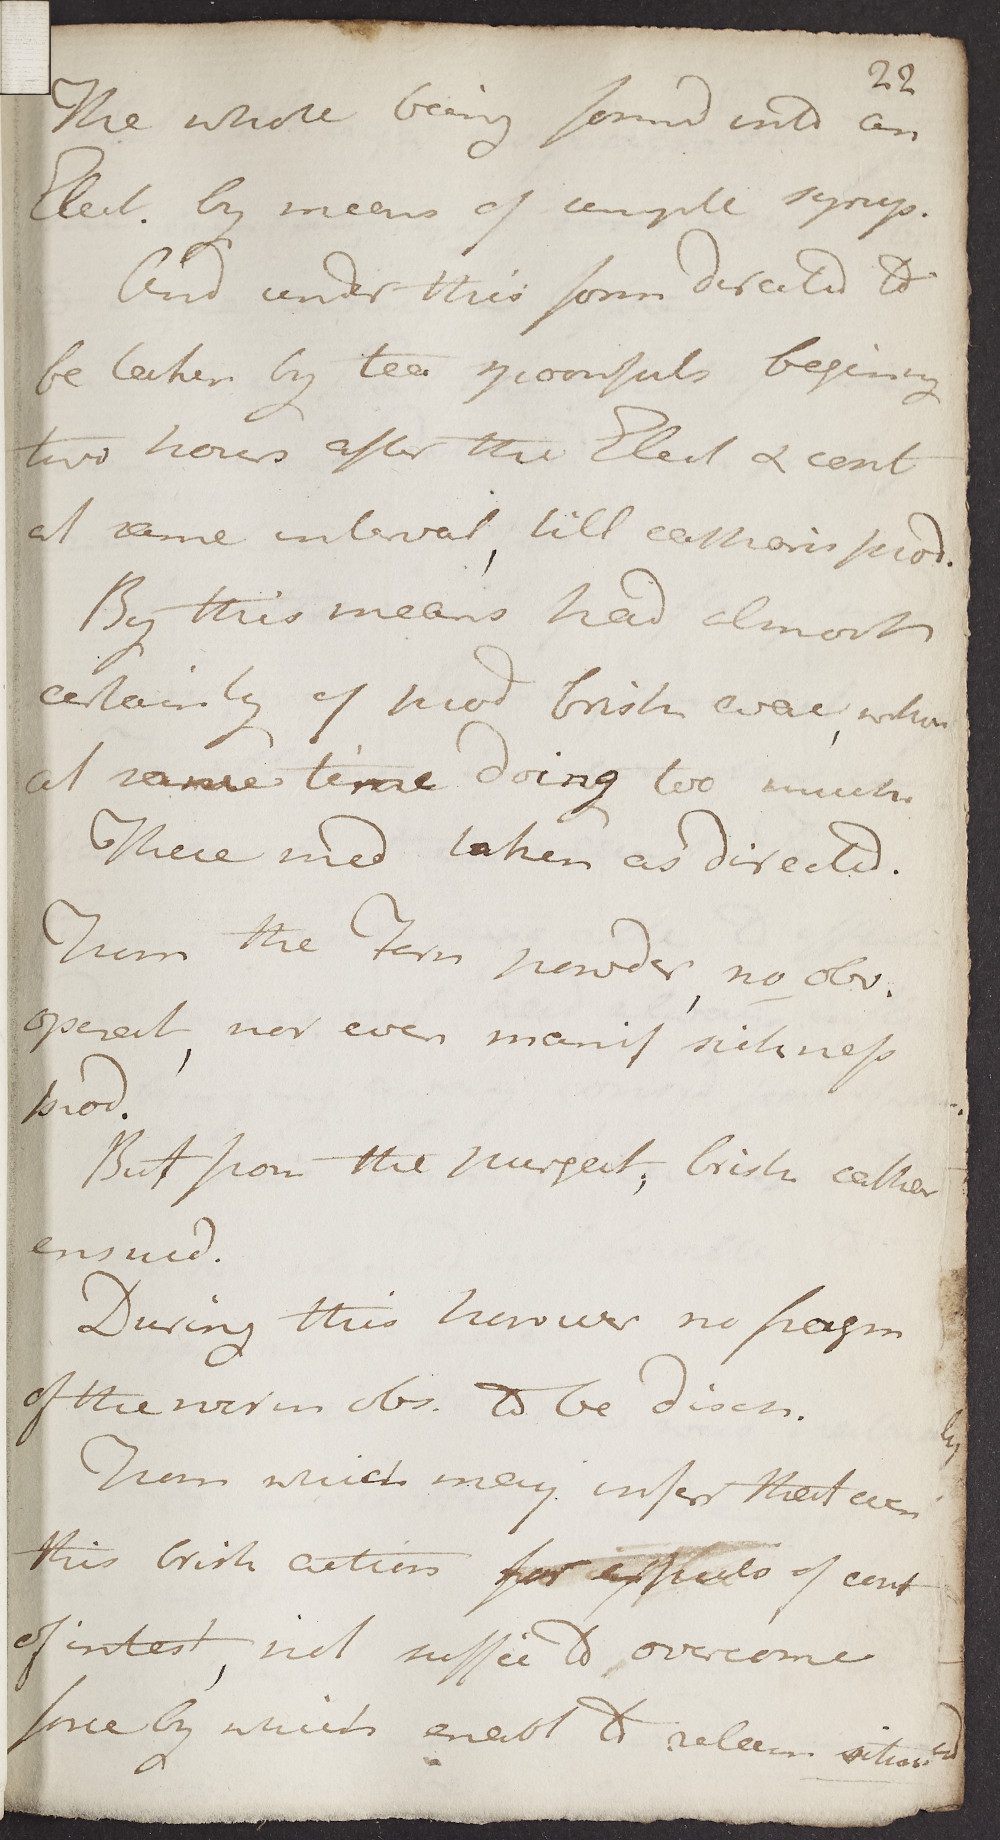 22
The whole being formd into an
Elect. by means of simple syrup.
And under this form directed to
be taken by tea spoonfuls beginng
two hours after the Elect & cont
at same interval, till cathars prod.
By this means had almost
certainty of prod brisk evac, when
at same time doing too much
These med taken as directd.
From the Fern powder, no obv.
operat, nor even manif sickness
prod.
But from the purgat, brisk cathar
ensued.
During this however no fragm
of the worm obs. to be disch.
From which may infer that even
this brisk action for expuls of cont
of intest, not suffic to overcome
force by which enabl to retain situat